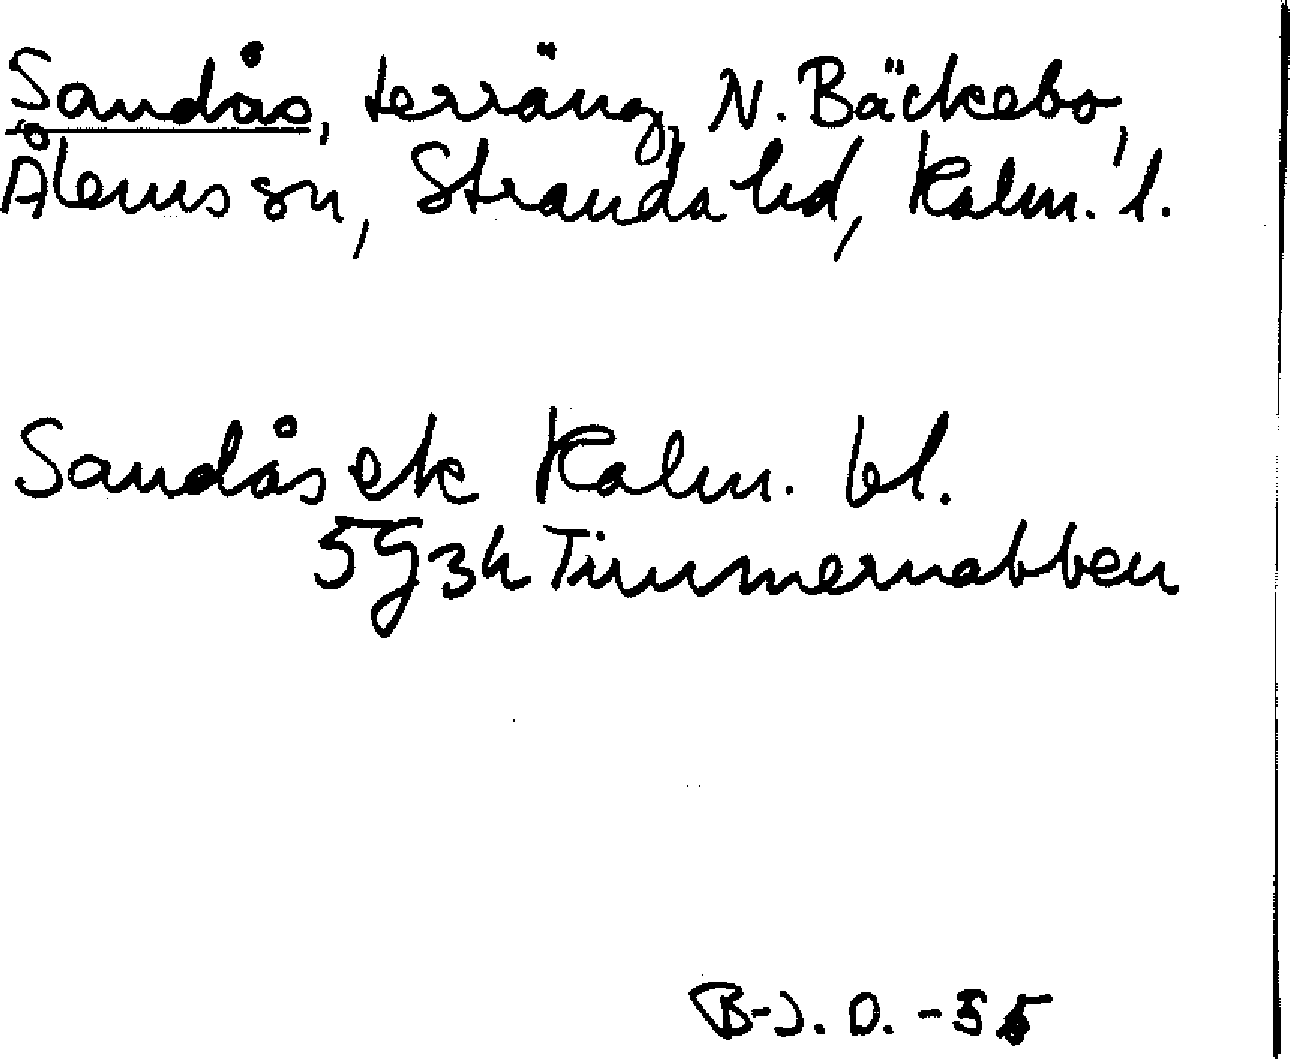 Sandås, terräng, N. Bäckebo,
Ålems sn, Stranda hd, Kalm. l.
Sandås ek Kalm. bl.
5G3h Timmernabben
B-J. O. -55